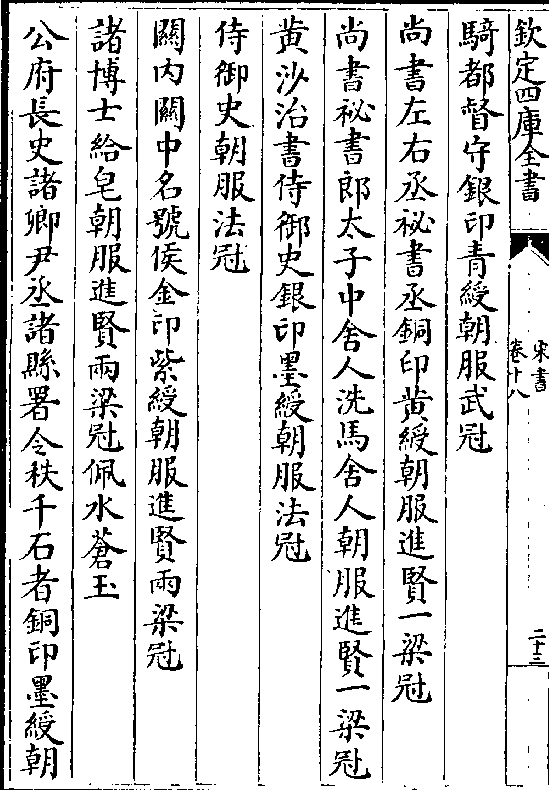 欽定四庫全書
宋書
卷十八
二十三
騎都督守銀印青綬朝服武冠
尚書左右丞祕書丞銅印黄綬朝服進賢一梁冠
尚書祕書郎太子中舍人洗馬舍人朝服進賢一梁冠
黄沙治書侍御史銀印墨綬朝服法冠
侍御史朝服法冠
關内關中名號侯金印紫綬朝服進賢兩梁冠
諸博士給皂朝服進賢兩梁冠佩水蒼玉
公府長史諸卿尹丞諸縣署令秩千石者銅印墨綬朝